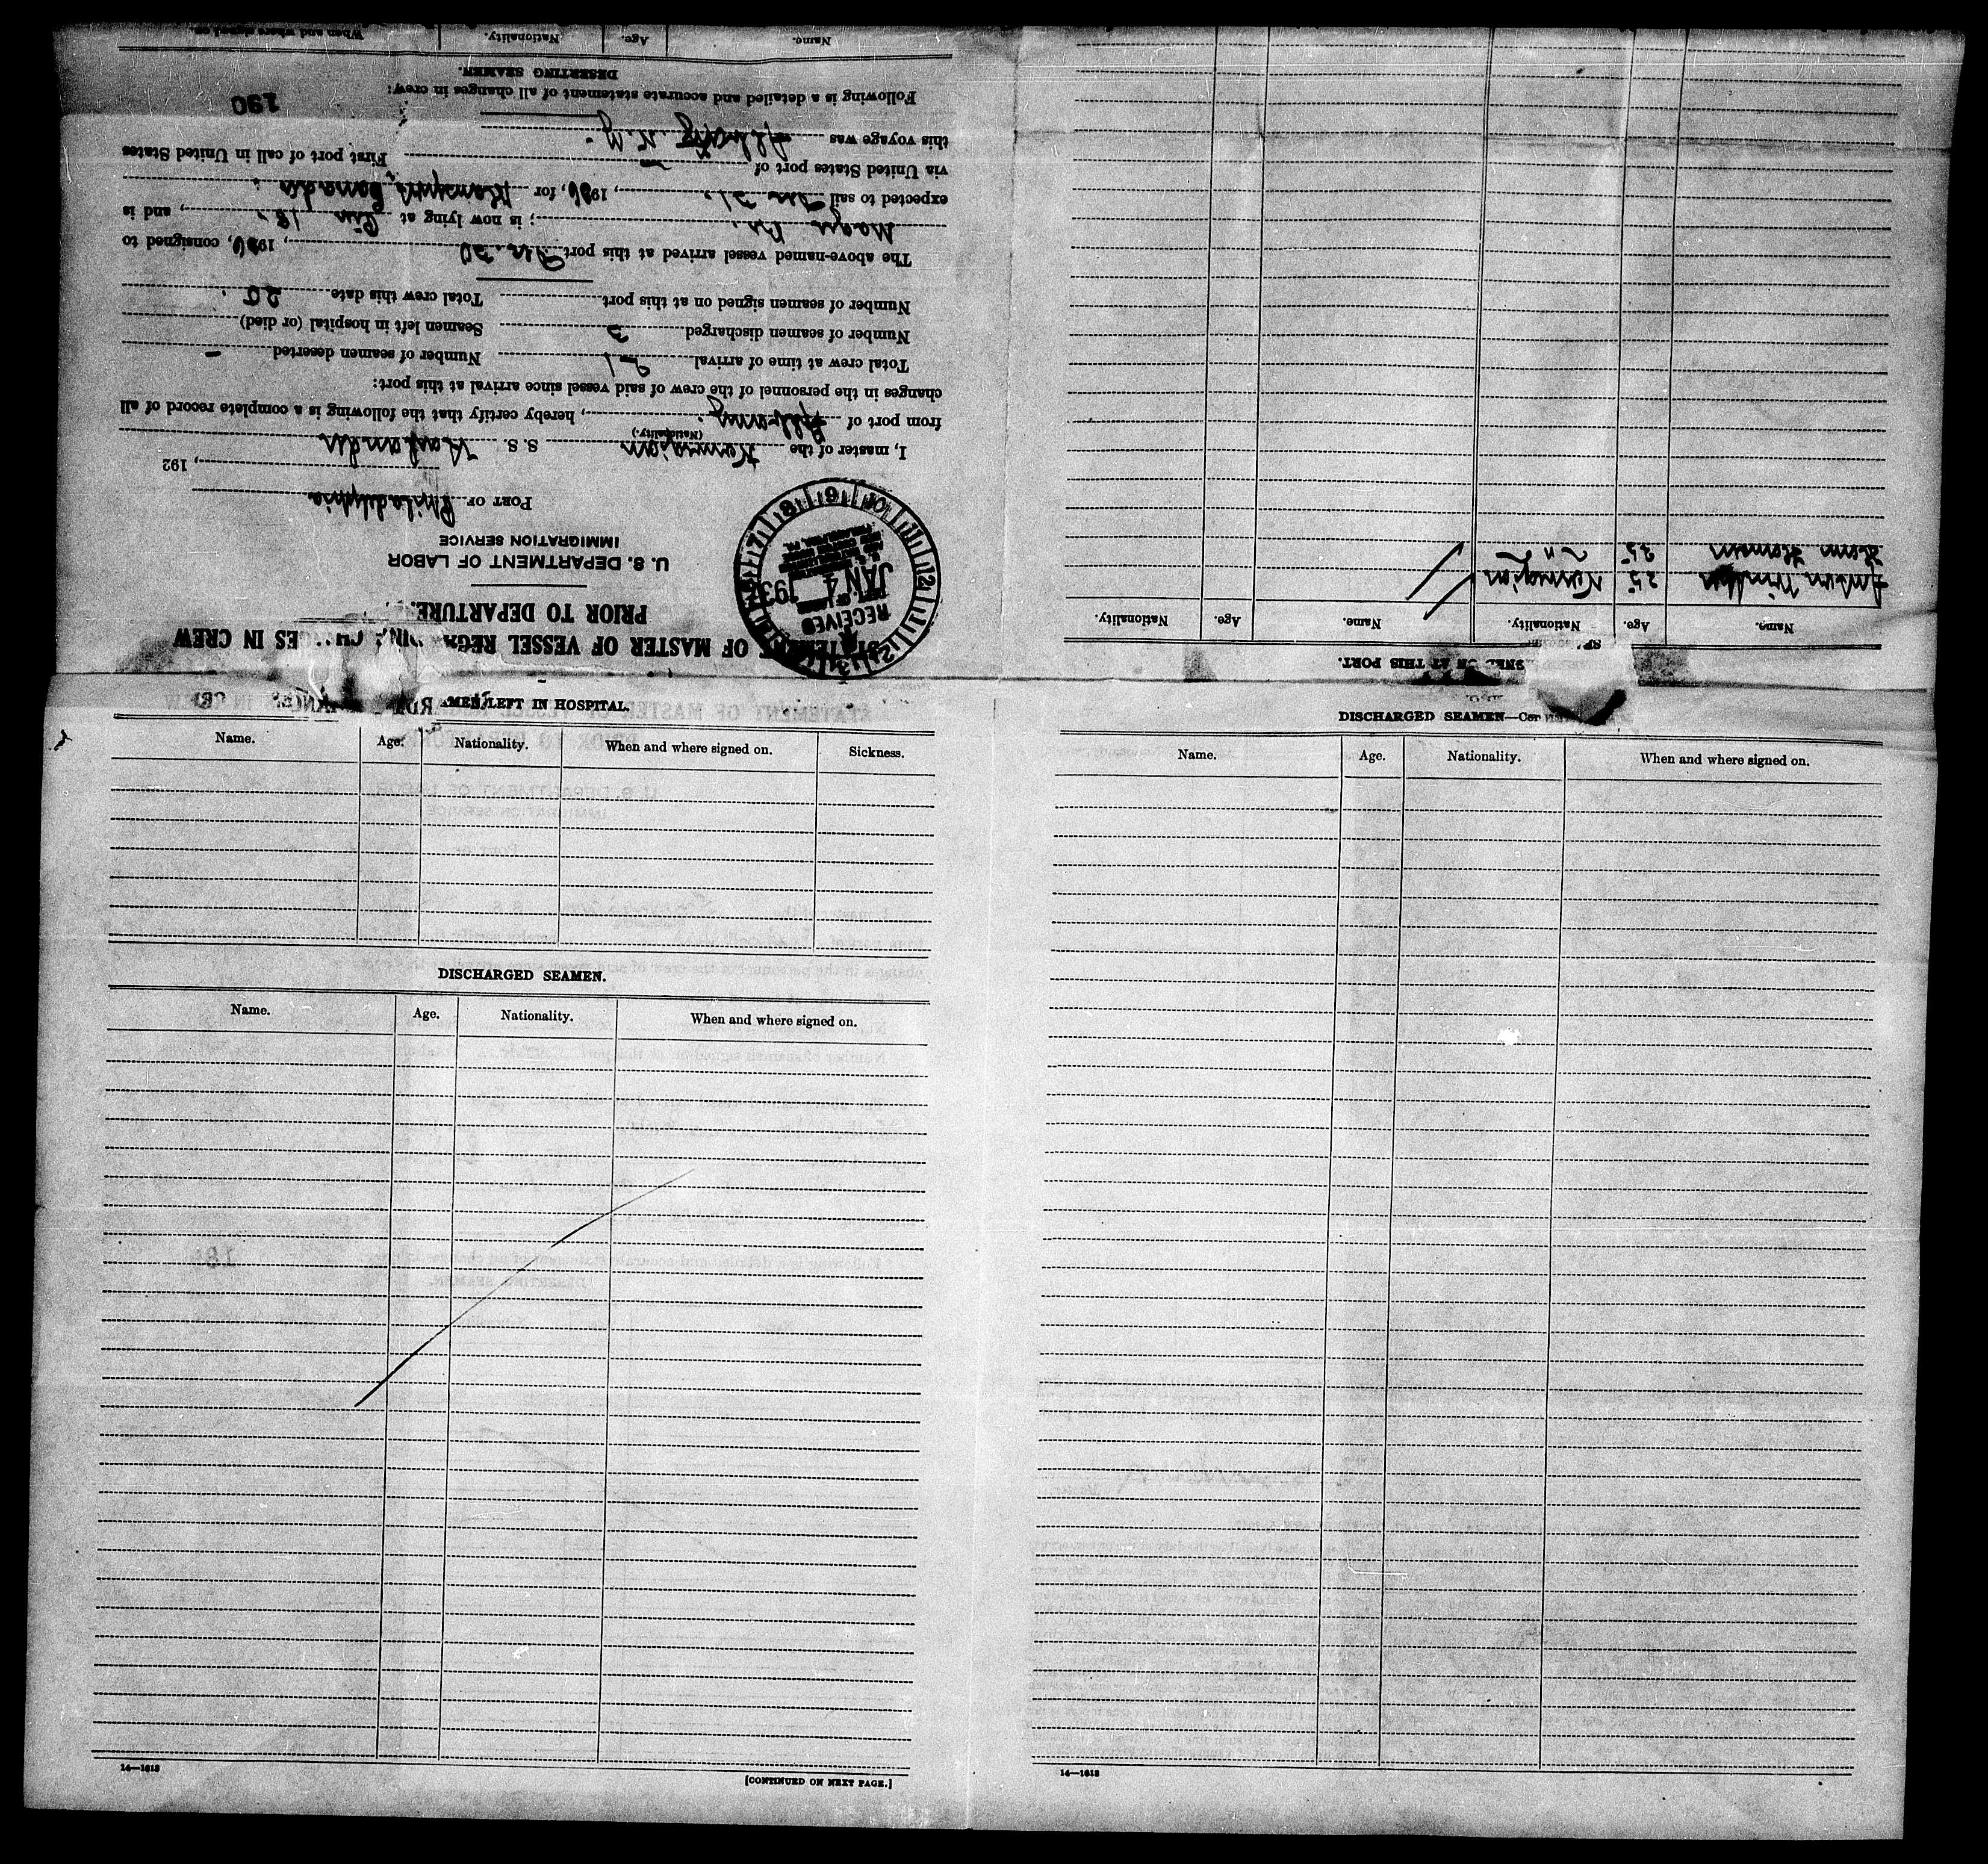 STATEMENT OF MASTER OF VESSEL REGARDING CHANGES IN CREW
PRIOR TO DEPARTURE.
U. S. DEPARTMENT OF LABOR
IMMIGRATION SERVICE
RECEIVED
JAN 4
PORT OF Philadelphia
, 192
I, master of the Norwegian S. S.
(Nationality.)
from port of Albany, hereby certify that the following is a complete record of all
changes in the personnel of the crew of said vessel since arrival at this port:
Total crew at time of arrival 21 Number of seamen deserted –
Number of seamen discharged 3 Seamen left in hospital (or died)
Number of seamen signed on at this port Total crew this date 20
The above-named vessel arrived at this port Dec. 30, 1936, consigned to
; is now lying at Pier 18, and is
expected to sail Dec 31, 1936, for Canada
via United States port of – First port of call in United States
this voyage was Albany N.Y.
Following is a detailed and accurate statement of all changes in crew:
190
DESERTING SEAMEN.
Name. Age. Nationality. When and where signed on.
SIGNED ON AT THIS PORT.
Name. Age. Nationality. Name. Age. Nationality.
25 Norwegian
25 " "
SEAMEN LEFT IN HOSPITAL.
Name. Age. Nationality. When and where signed on. Sickness.
DISCHARGED SEAMEN.
Name. Age. Nationality. When and where signed on.
14—1618
[CONTINUED ON NEXT PAGE.]
DISCHARGED SEAMEN—Con
Name. Age. Nationality. When and where signed on.
14—1618